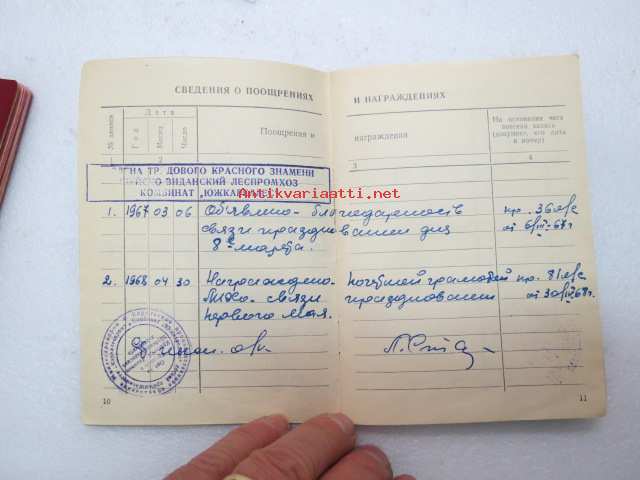 СВЕДЕНИЯ О ПООЩРЕНИЯХ И НАГРАЖДЕНИЯХ
№ записи
Дата
Год
Месяц
Число
Поощрения и награждения
На основании чего
внесена запись
(документ, его дата
и номер)
3
4
ЕНА ТР ДОВОГО КРАСНОГО ЗНАМЕНИ
ВИДАНСКИЙ ЛЕСПРОМХОЗ
КОМБИНАТ „ЮЖКАРЕЛЛЕС“
Antikvariaatti.net
1. 1967 03 06 Объявлено благодарность пр. 36 л/с
связи празднования дня от 6/III-67г
8е марта.
2. 1968 04 30 Награждено почетной грамотой пр. 81 л/с
связи празднования от 30/IV-68г.
первого мая.
10
11